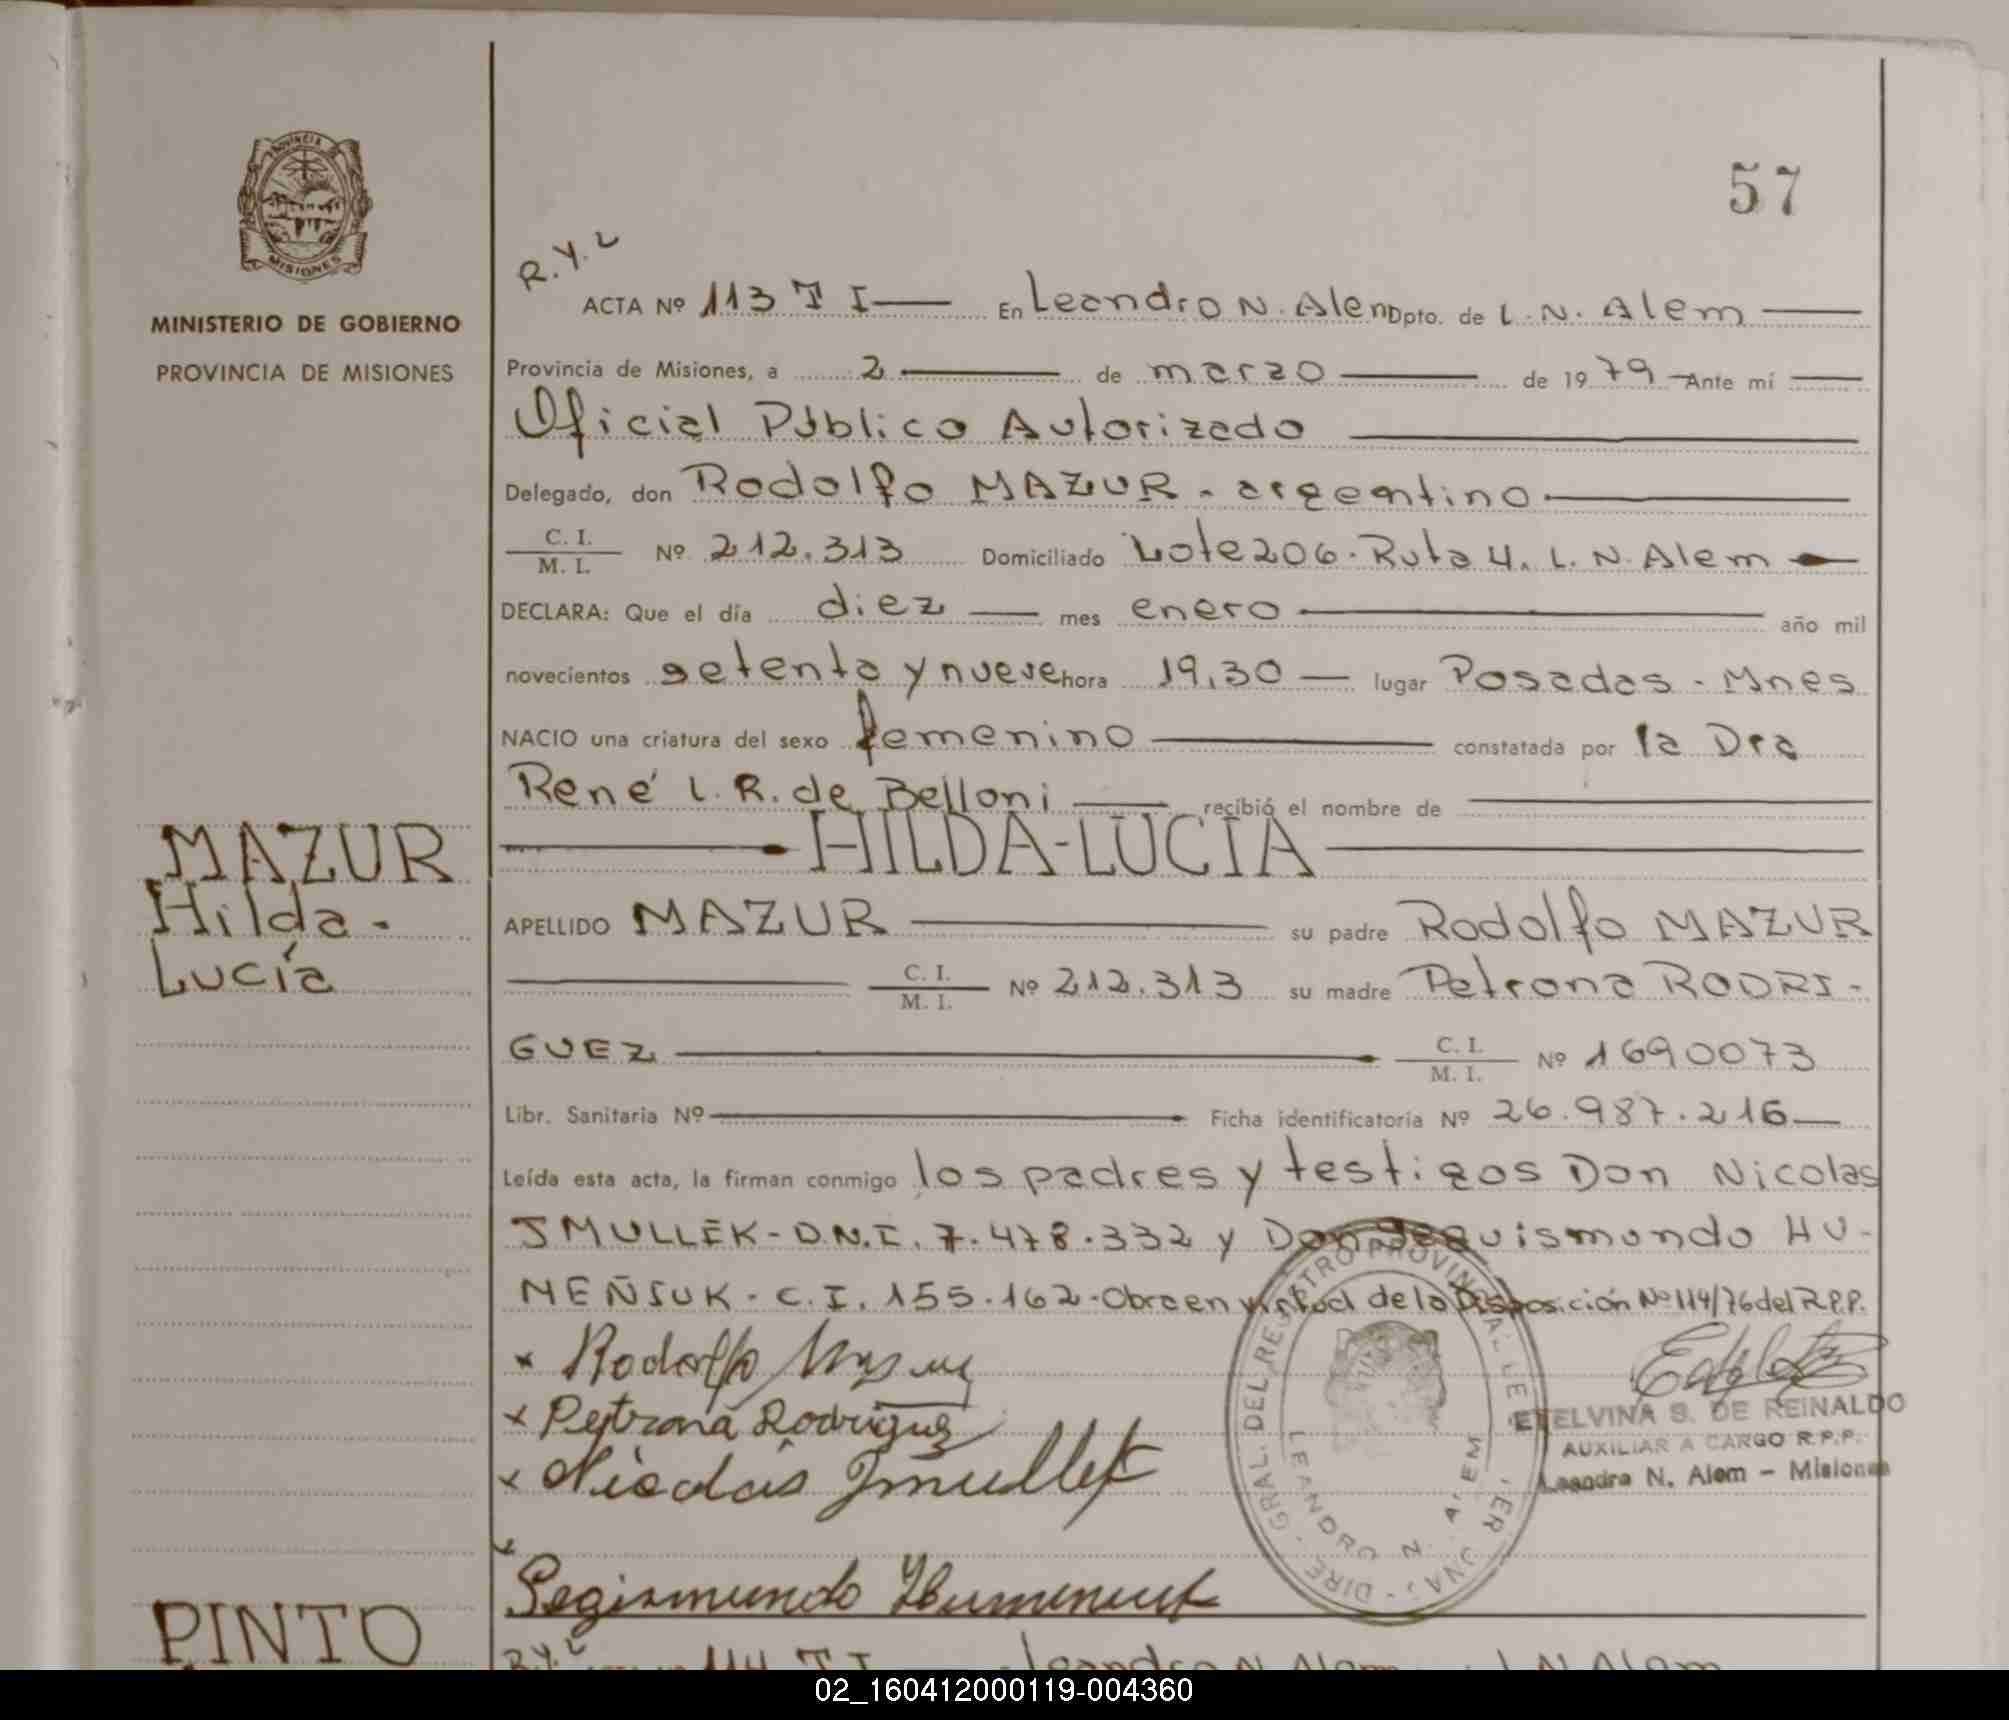 PROVINCIA DE
MISIONES
MINISTERIO DE GOBIERNO
PROVINCIA DE MISIONES
57
R.Y.L
ACTA Nº 113 T I En Leandro N. Alem Dpto. de L. N. Alem
Provincia de Misiones, a 2 de marzo de 1979 Ante mí
Oficial Público Autorizado
Delegado, don Rodolfo MAZUR - argentino
C. I. / M. I. Nº 212.313 Domiciliado Lote 206. Ruta 4. L. N. Alem
DECLARA: Que el día diez mes enero año mil
novecientos setenta y nueve hora 19,30 lugar Posadas - Mnes
NACIO una criatura del sexo femenino constatada por la Dra
René L. R. de Belloni recibió el nombre de
HILDA-LUCIA
MAZUR
Hilda-
Lucía
APELLIDO MAZUR su padre Rodolfo MAZUR
C. I. / M. I. Nº 212.313 su madre Petrona RODRI-
GUEZ C. I. / M. I. Nº 1690073
Libr. Sanitaria Nº Ficha identificatoria Nº 26.987.216
Leída esta acta, la firman conmigo los padres y testigos Don Nicolas
JMULLEK - D.N.I. 7.478.332 y Don Seguismundo HU-
MEÑIUK - C.I. 155.162 - Obra en virtud de la Disposición Nº 114/76 del R.P.P.
x Rodolfo Mazur
x Petrona Rodriguez
x Nicolás Jmullek
x
Segismundo Humeniuk
DIRE. GRAL. DEL REGISTRO PROVINCIAL DE
LEANDRO N. ALEM
ETELVINA S. DE REINALDO
AUXILIAR A CARGO R.P.P.
Leandro N. Alem - Misiones
PINTO
R.Y.L 114 T I Leandro N. Alem L. N. Alem
02_160412000119-004360